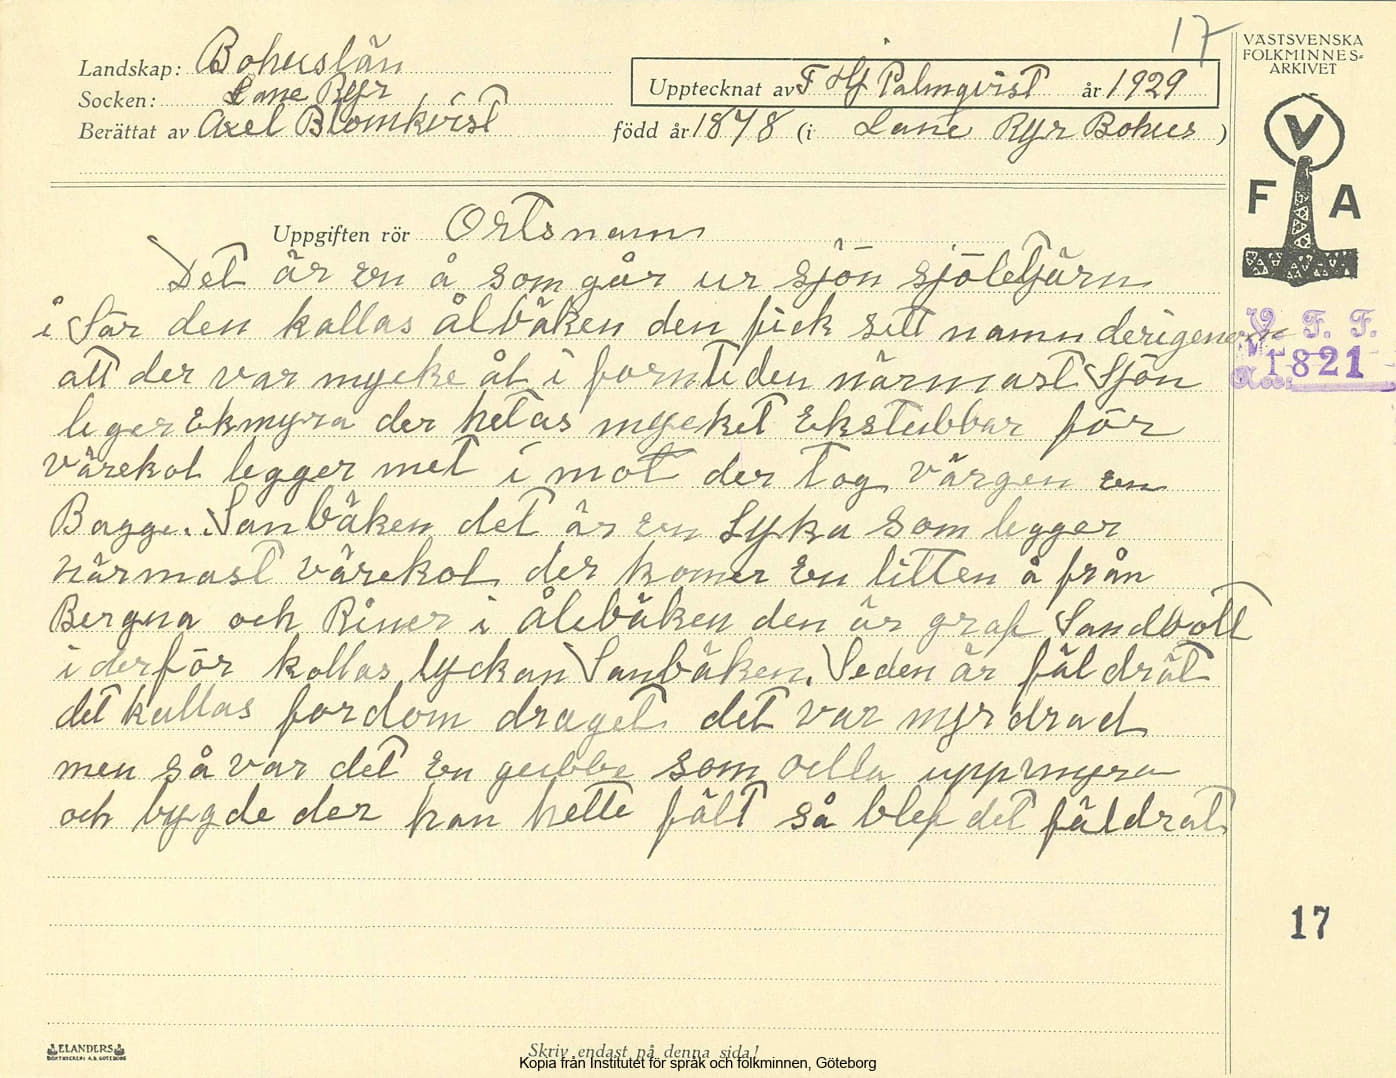 17
VÄSTSVENSKA
FOLKMINNES-
ARKIVET
Landskap: Bohuslän
Socken: Lane Ryr
Upptecknat av F Hj Palmqvist år 1929
Berättat av Axel Blomkvist född år 1878 (i Lane Ryr Bohus )
V
F A
Uppgiften rör Ortsnamn
Det är en å som går ur sjön sjöletjärn
i Sär den kallas ålbäken den fick sitt namn derigenom
V. F. F.
1821
att der var mycke ål i forntiden närmast Sjön
leger Ekmyra der hetas mycket Ekstubbar för
värekol legger met i mot der tog värgen en
Bagge. Sanbäken det är en Lyka som legger
närmast värekol der komer en litten å från
Bergna och Riner i ålebäken den är graf Sandbott
i derför kallas lyckan Sanbäken. Seden är fäldrät
det kallas fordom draget det var myrdrad
men så var det en gubbe som oella upp myra
och bygde der han hette fält så blef det fäldrat
17
ELANDERS
BOKTRYCKERI A.B. GÖTEBORG
Skriv endast på denna sida!
Kopia från Institutet för språk och folkminnen, Göteborg